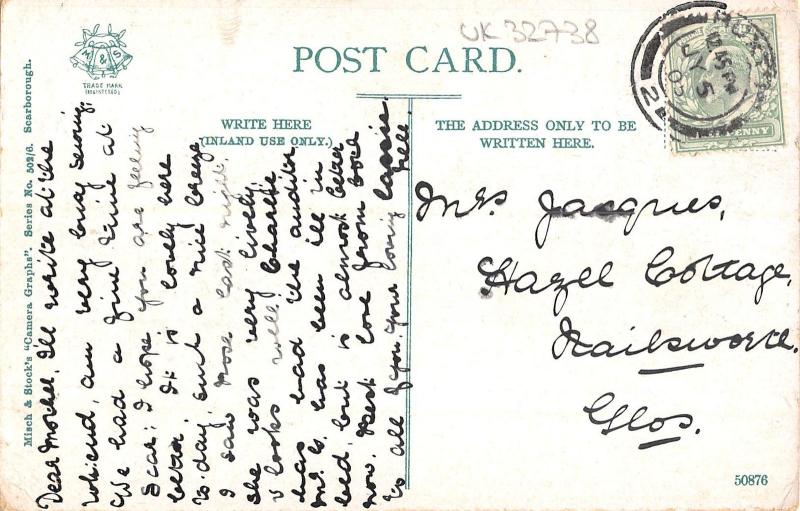 UK 32738
POST CARD.
M & S
TRADE MARK
(REGISTERED)
WRITE HERE
(INLAND USE ONLY.)
THE ADDRESS ONLY TO BE
WRITTEN HERE.
Misch & Stock's "Camera Graphs". Series No. 502/6. Scarborough.
Dear Mother, Ill write at the
w'kend, am very busy sewing,
We had a fine time at
Scar: I hope you are feeling
better. It is lovely here
to-day, such a nice breeze
I saw Rose last night.
she was very lively
& looks well! Charlie
has had the auditor
Mr. G. has been ill in
bed, but is almost better
now. Best love from both
to all of you, your loving Lassie.
Nell.
Mrs Jacques,
Hazel Cottage,
Nailsworth.
Glos.
PENNY
50876